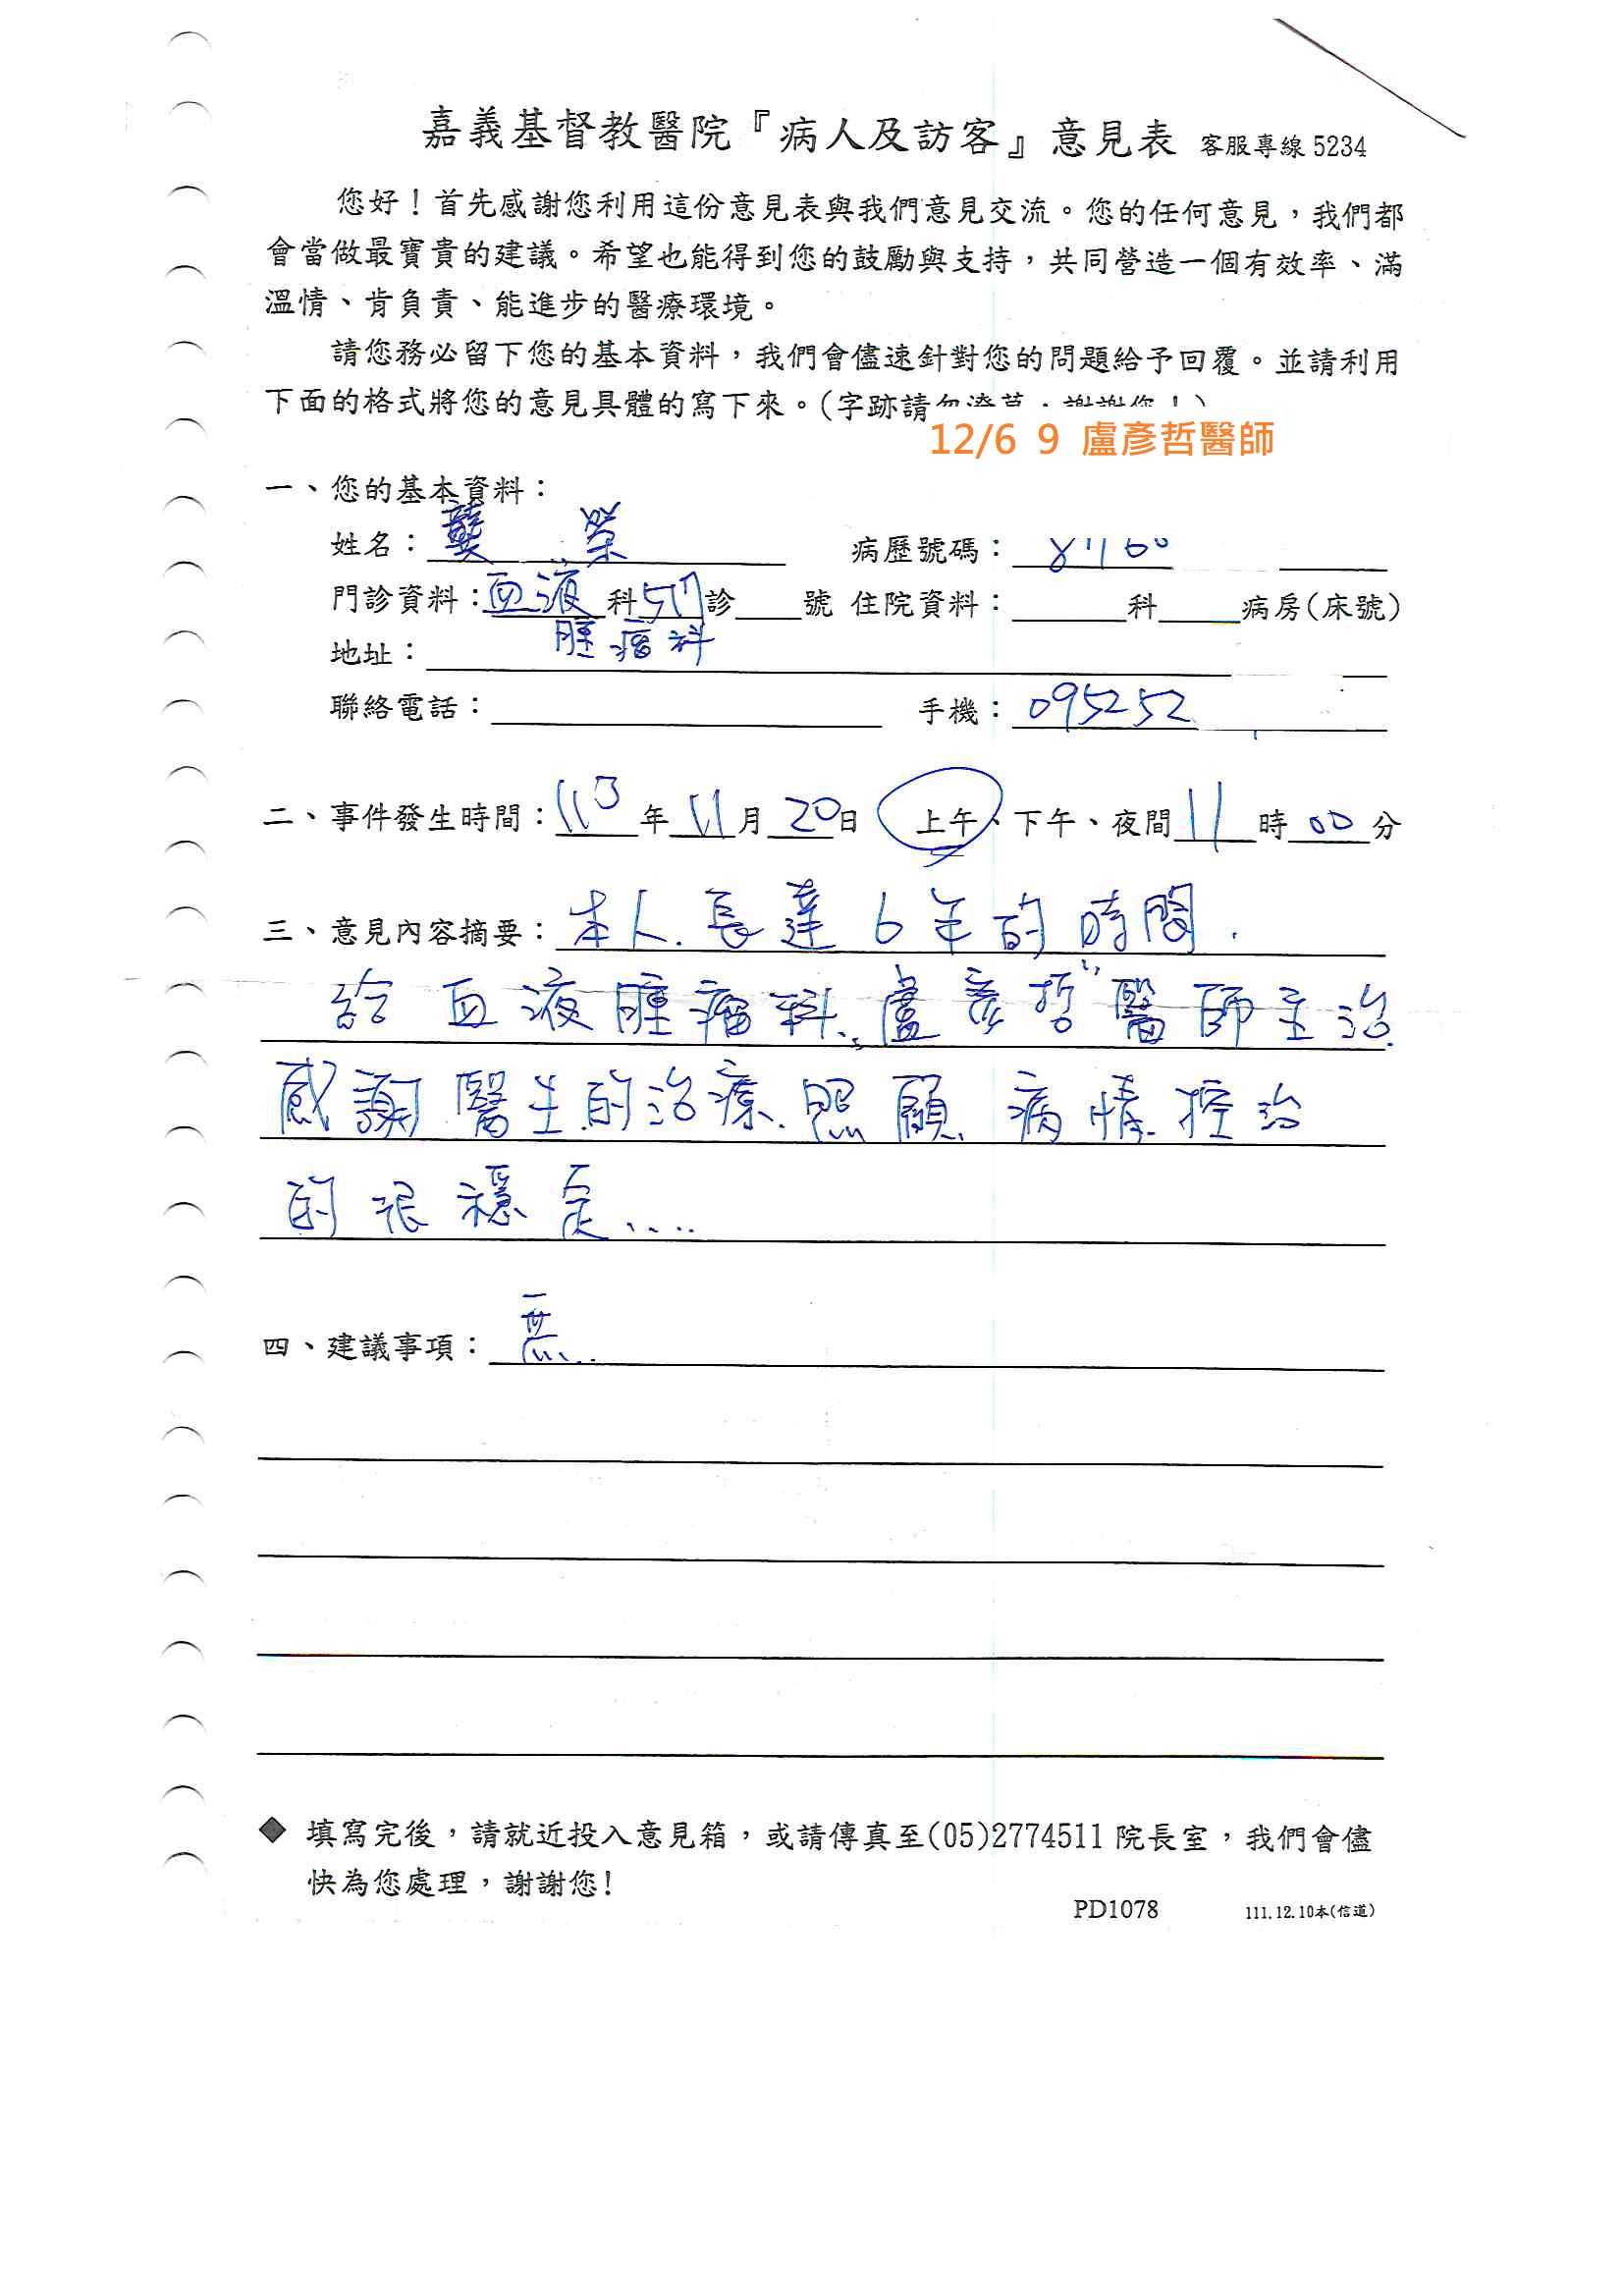 嘉義基督教醫院『病人及訪客』意見表 客服專線 5234
您好!首先感謝您利用這份意見表與我們意見交流。您的任何意見,我們都
會當做最寶貴的建議。希望也能得到您的鼓勵與支持,共同營造一個有效率、滿
溫情、肯負責、能進步的醫療環境。
請您務必留下您的基本資料,我們會儘速針對您的問題給予回覆。並請利用
下面的格式將您的意見具體的寫下來。(字跡請勿潦草,謝謝您!)
12/6 9 盧彥哲醫師
一、您的基本資料:
姓名: 龔 榮 病歷號碼:
門診資料:血液科 診 號 住院資料: 科 病房(床號)
腫瘤科
地址:
聯絡電話: 手機:095252
二、事件發生時間:113年11月20日 上午、下午、夜間11時00分
三、意見內容摘要:本人.長達6年的時間.
給血液腫瘤科.盧彥哲"醫師主治.
感謝醫生的治療.照顧.病情控治
的很穩定.....
四、建議事項:無...
◆ 填寫完後,請就近投入意見箱,或請傳真至(05)2774511 院長室,我們會儘
快為您處理,謝謝您!
PD1078 111.12.10本(信道)